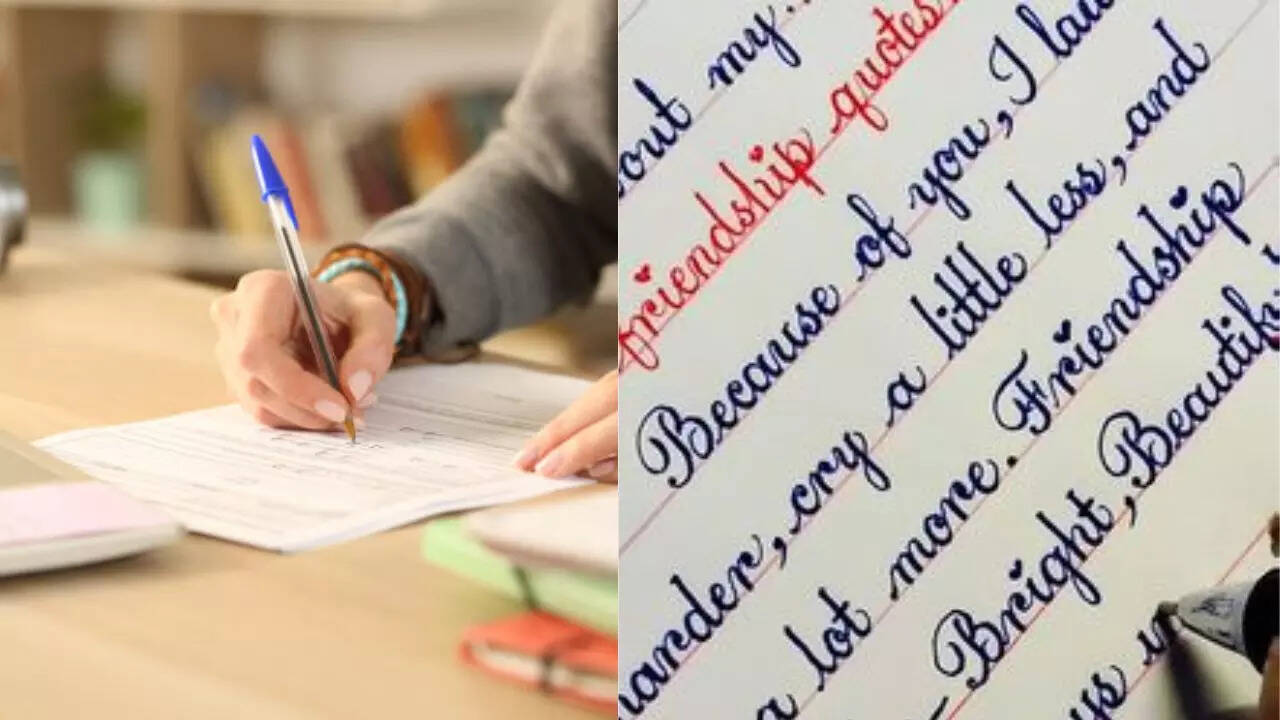 out my..
friendship quotes
Because of you, I lau
harder, cry a little less, and
a lot more. Friendship
Bright, Beautif
ys